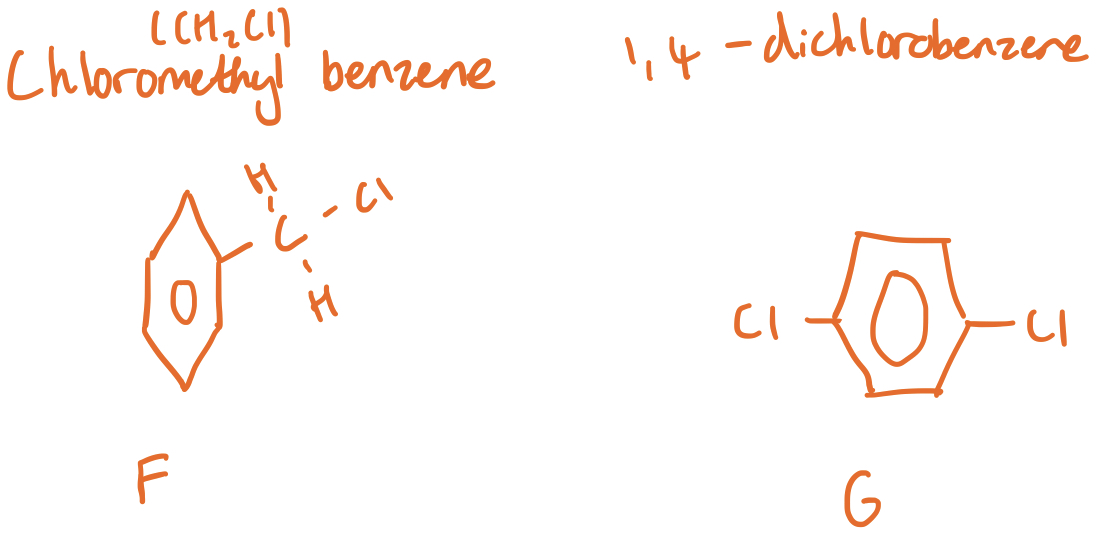 (CH₂Cl)
Chloromethyl benzene
1,4 - dichlorobenzene
H
C
Cl
H
Cl
Cl
F
G